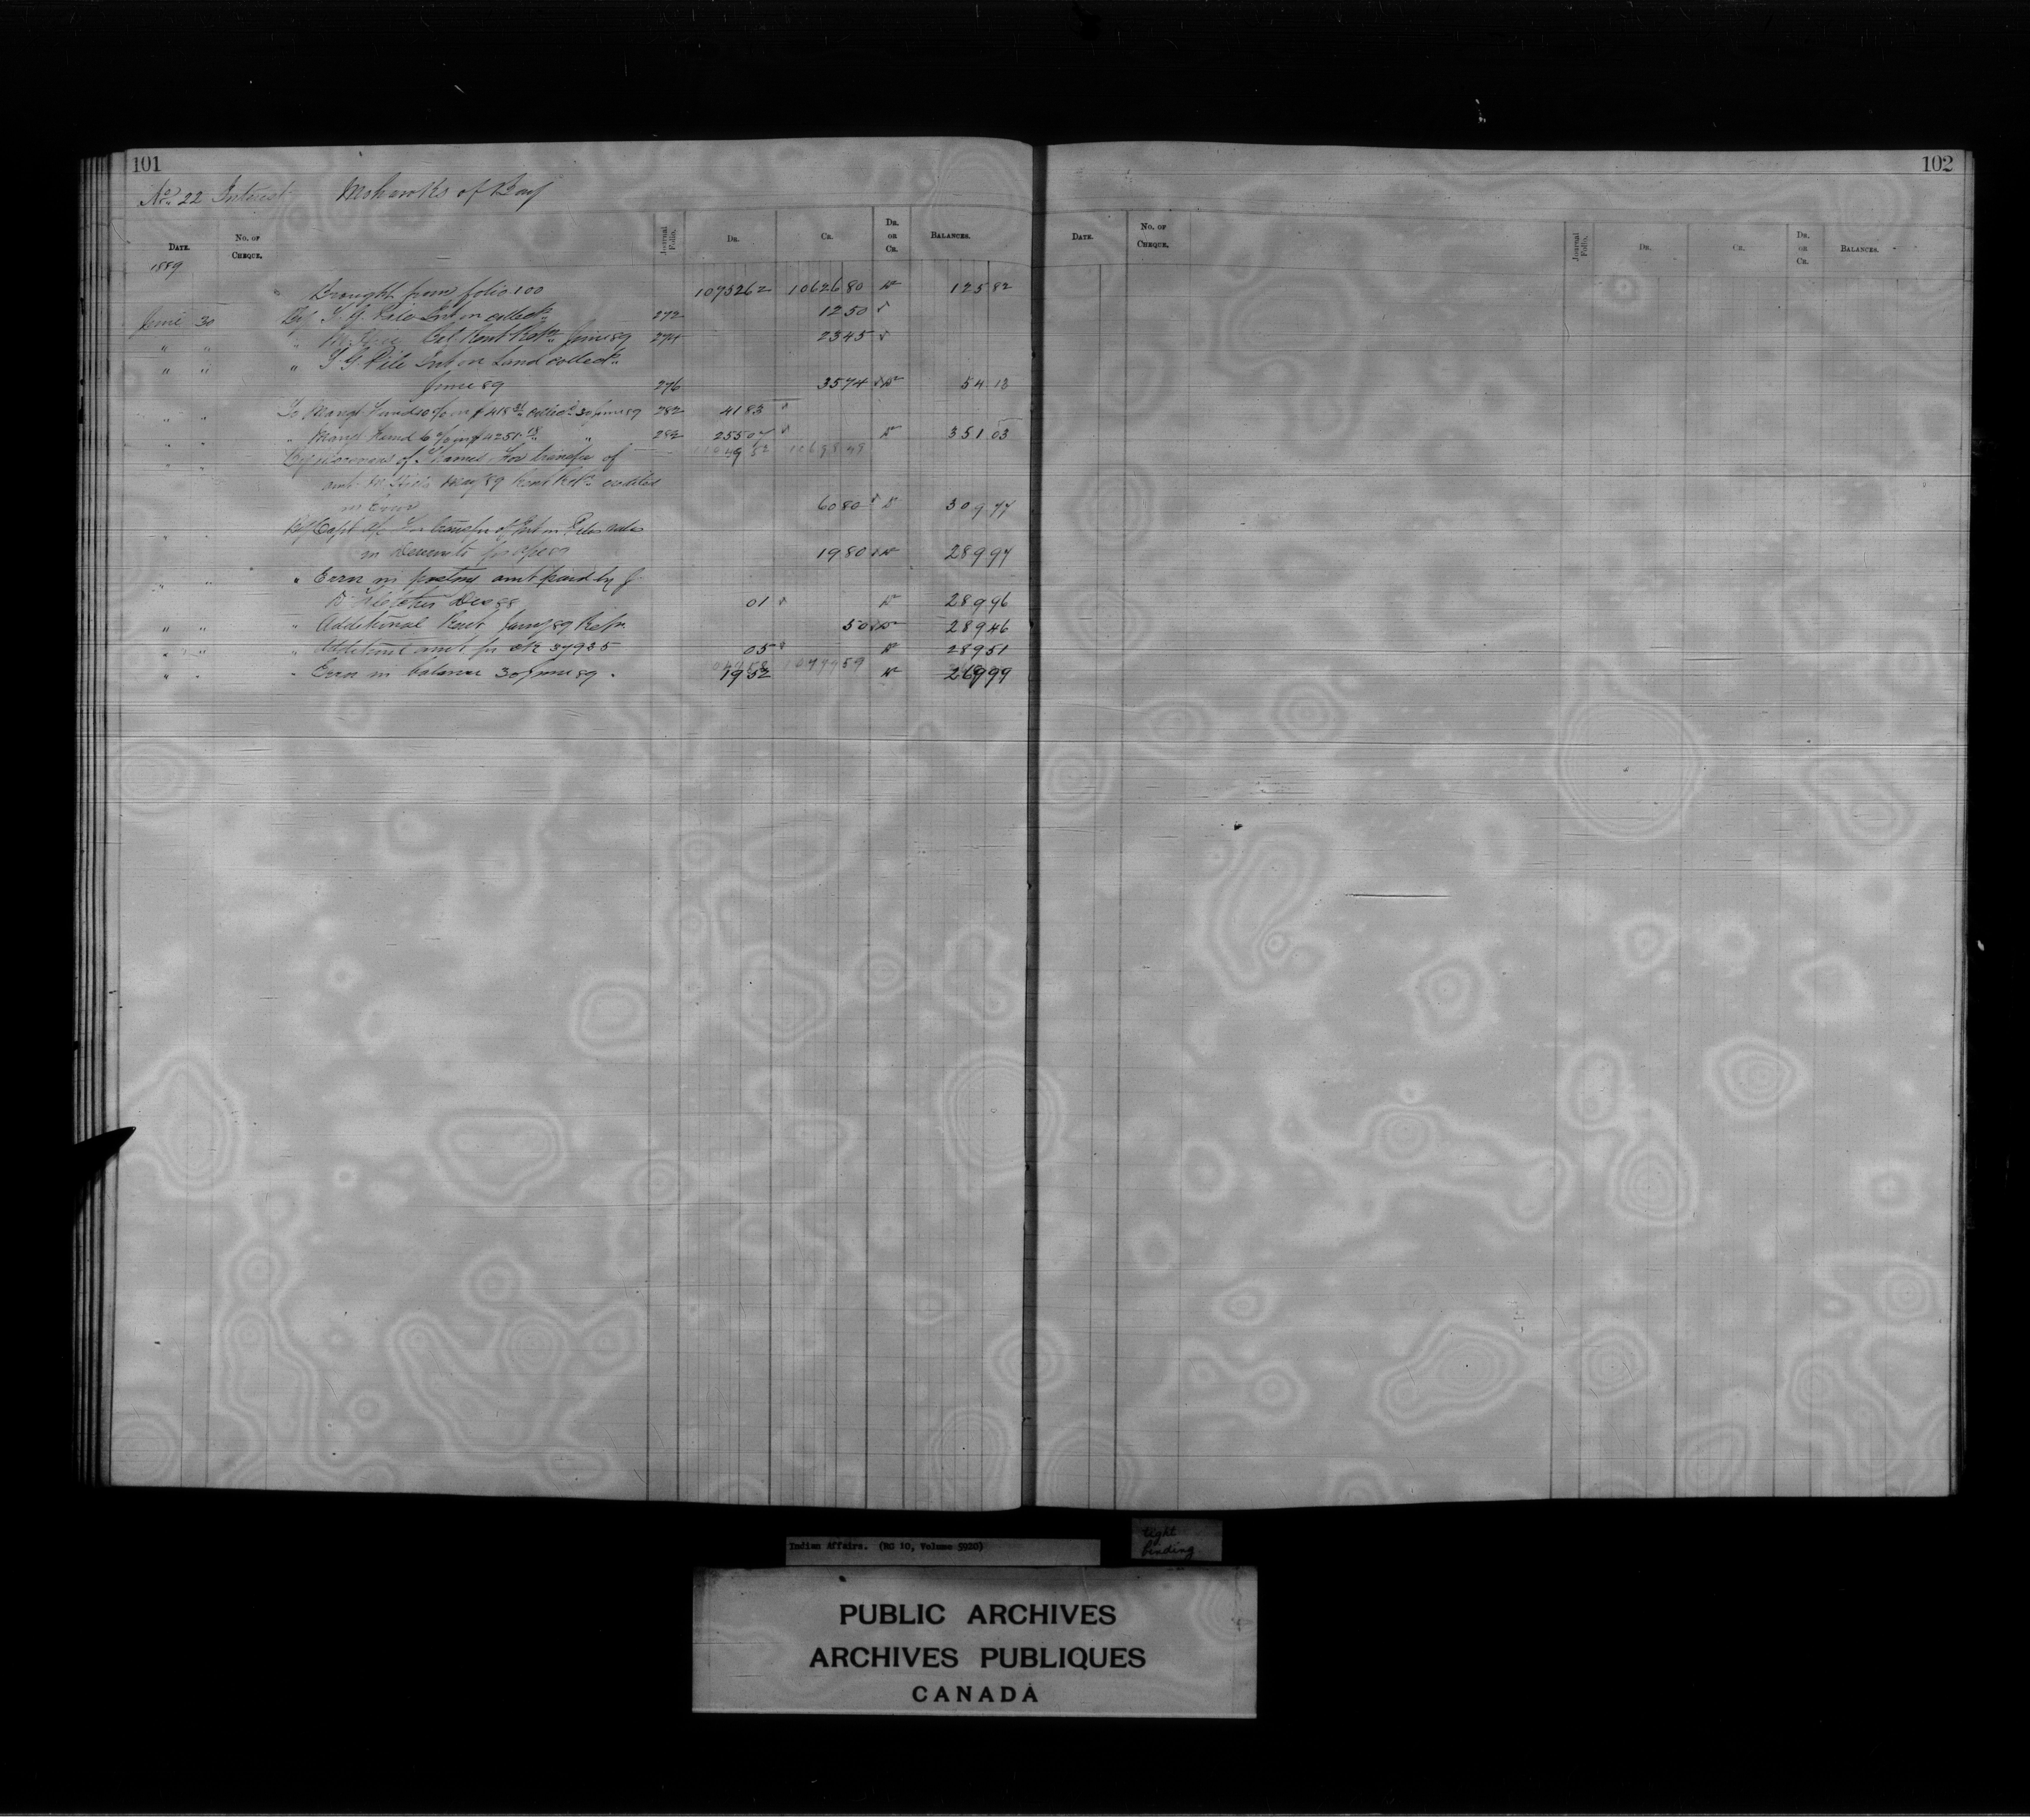 101
No. 22 Interest Mohawks of Bay
DATE. No. OF CHEQUE. Journal Folio. DR. CR. DR. OR CR. BALANCES.
1889
Brought from folio 100 10752 62 10626 80 Dr 125 82
June 30 By T G Pile Int on collectns 272 12 50
" " " Rent Retn June 89 274 23 45
" " " T G Pile Int on Land collectn
June 89 276 35 74 Dr 54 13
" " To Mangt Fund 10 % on $ 418 31 collectns 30 June 89 282 41 83
" " " Mangt Fund 6 % on $ 4251 18 " 282 255 07 Dr 351 03
" " By Moravians of Thames For transfer of
amt May 89 Rent Retn credited
in Error 60 80 Dr 309 77
" " By Capt a/c For transfer of Int on Piles sales
in 19 80 Dr 289 97
" " " Error in amt paid by J
Dec 88 01 Dr 289 96
" " " Additional Rent June 89 Retn 50 Dr 289 46
" " " Additional amt for 37935 05 Dr 289 51
" " " Error in balance 30 June 89. 19 52 Dr 269 99
102
DATE. No. OF CHEQUE. Journal Folio. DR. CR. DR. OR CR. BALANCES.
Indian Affairs. (RG 10, Volume 5920)
tight
binding
PUBLIC ARCHIVES
ARCHIVES PUBLIQUES
CANADA